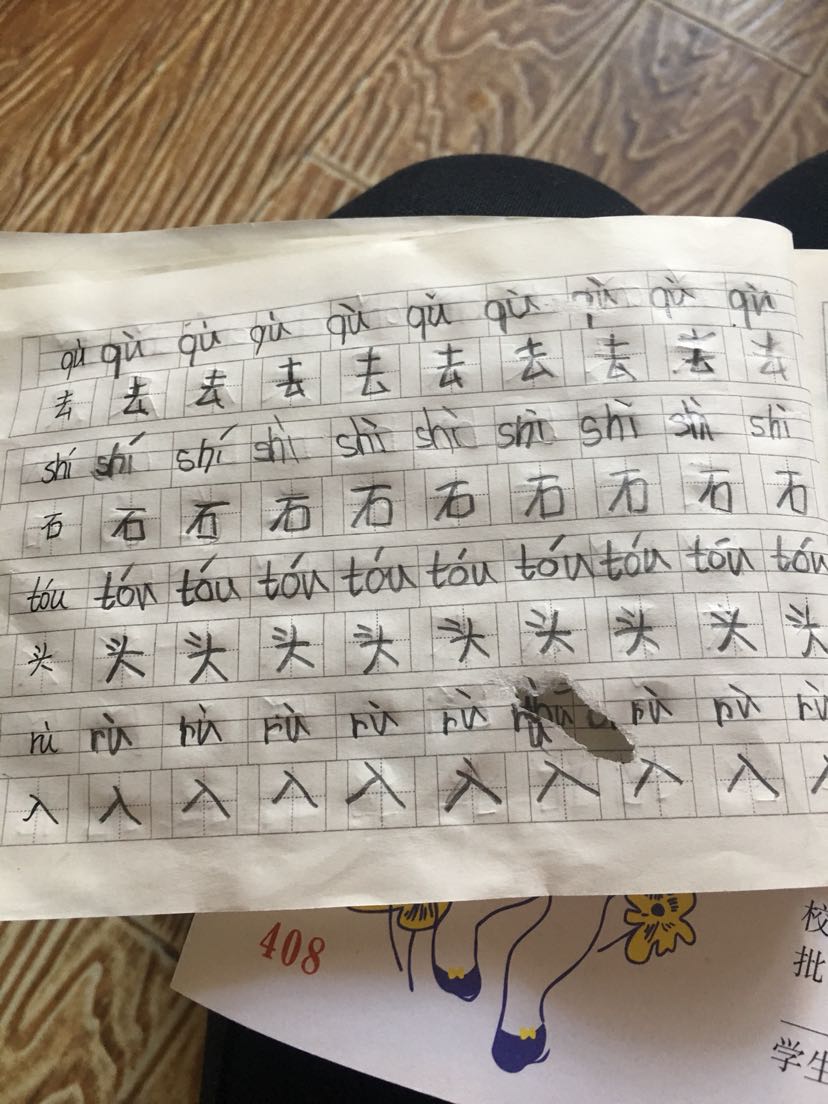 qù qù qù qù qù qù qù qù qù
去 去 去 去 去 去 去 去 去 去
shí shí shí shì shì shì shì shì shì shì
石 石 石 石 石 石 石 石 石 石
tóu tóu tóu tóu tóu tóu tóu tóu tōu tóu
头 头 头 头 头 头 头 头 头 头
rù rù rù rù rù rù rù rù rù
入 入 入 入 入 入 入 入 入
408
校
批
学生